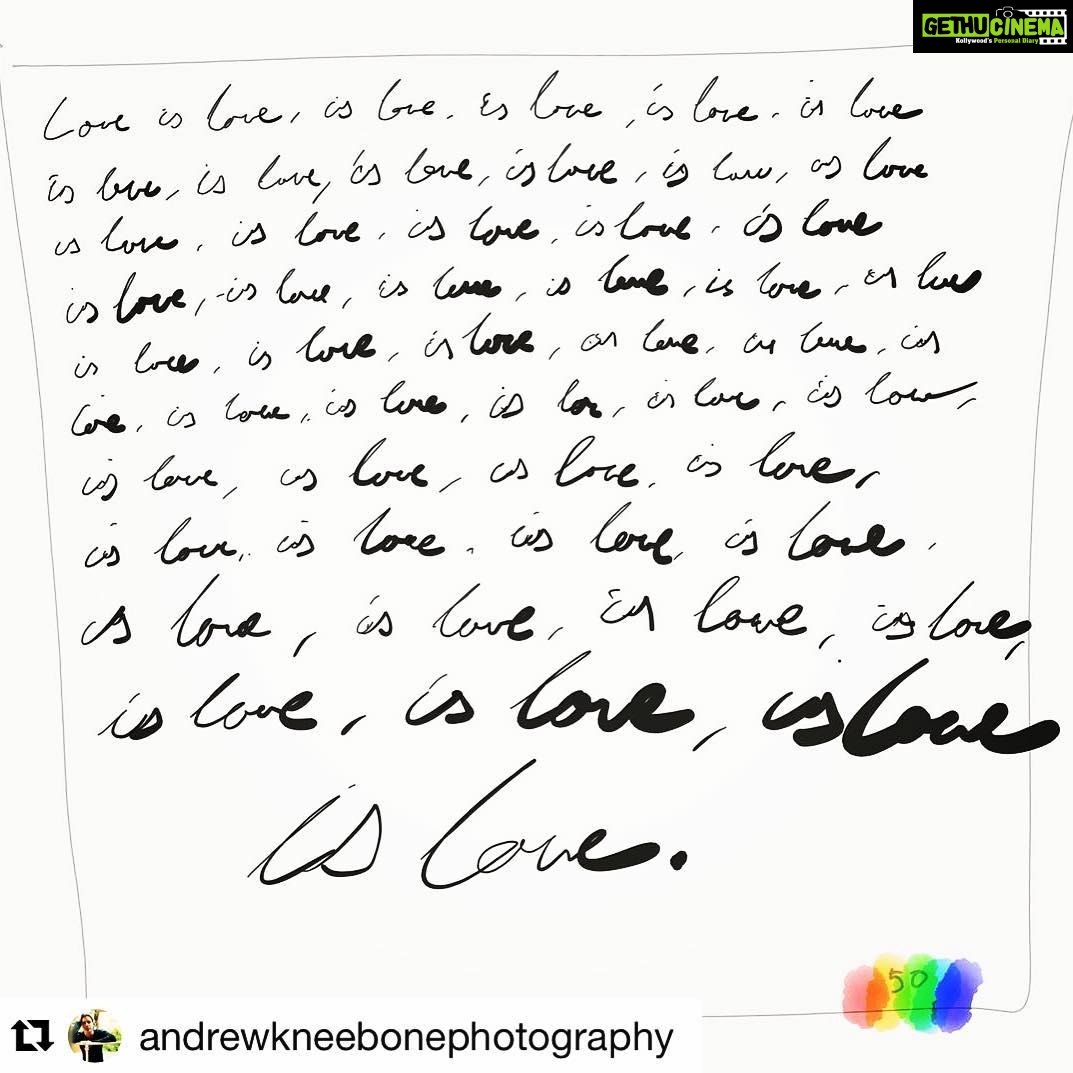 GETHUCINEMA
Kollywood's Personal Diary
Love is love, is love. is love, is love. is love
is love, is love, is love, is love, is love, is love
is love, is love, is love, is love, is love
is love, is love, is love, is love, is love, is love
is love, is love, is love, is love, is love, is
love, is love, is love, is love, is love, is love,
is love, is love, is love, is love,
is love, is love, is love, is love,
is love, is love, is love, is love,
is love, is love, is love
is love.
50
andrewkneebonephotography